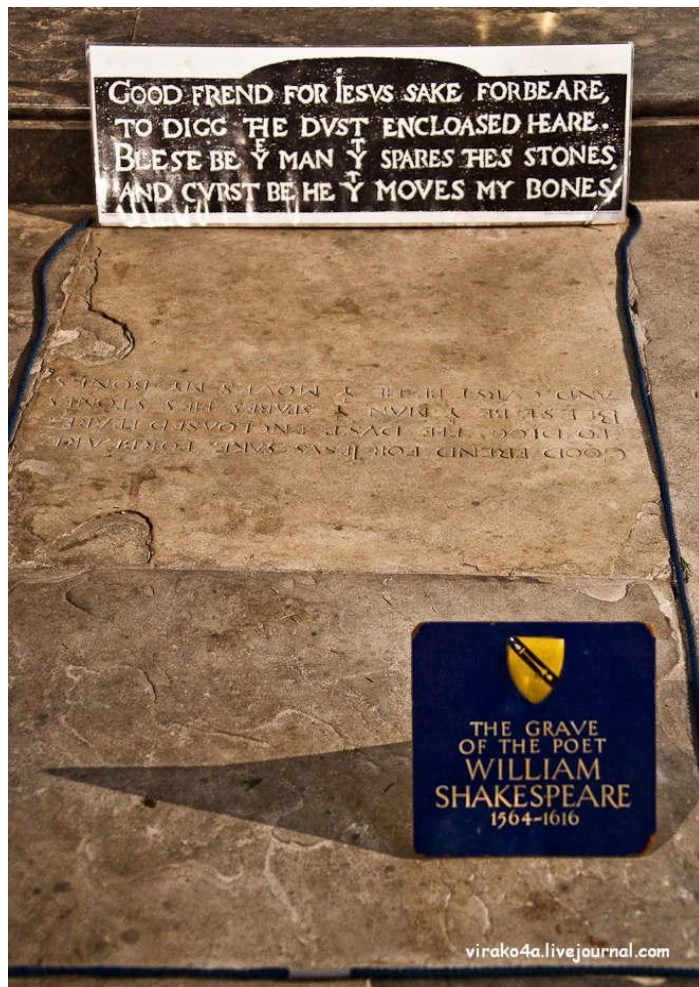 GOOD FREND FOR IESVS SAKE FORBEARE,
TO DIGG THE DVST ENCLOASED HEARE.
BLESE BE Yͤ MAN Yͭ SPARES THES STONES
AND CVRST BE HE Yͭ MOVES MY BONES
GOOD FREND FOR IESVS SAKE FORBEARE
TO DIGG THE DVST ENCLOASED HEARE
BLESE BE Y MAN Y SPARES HES STONES
AND CVRST BE HE Y MOVES MY BONES
THE GRAVE
OF THE POET
WILLIAM
SHAKESPEARE
1564-1616
virako4a.livejournal.com